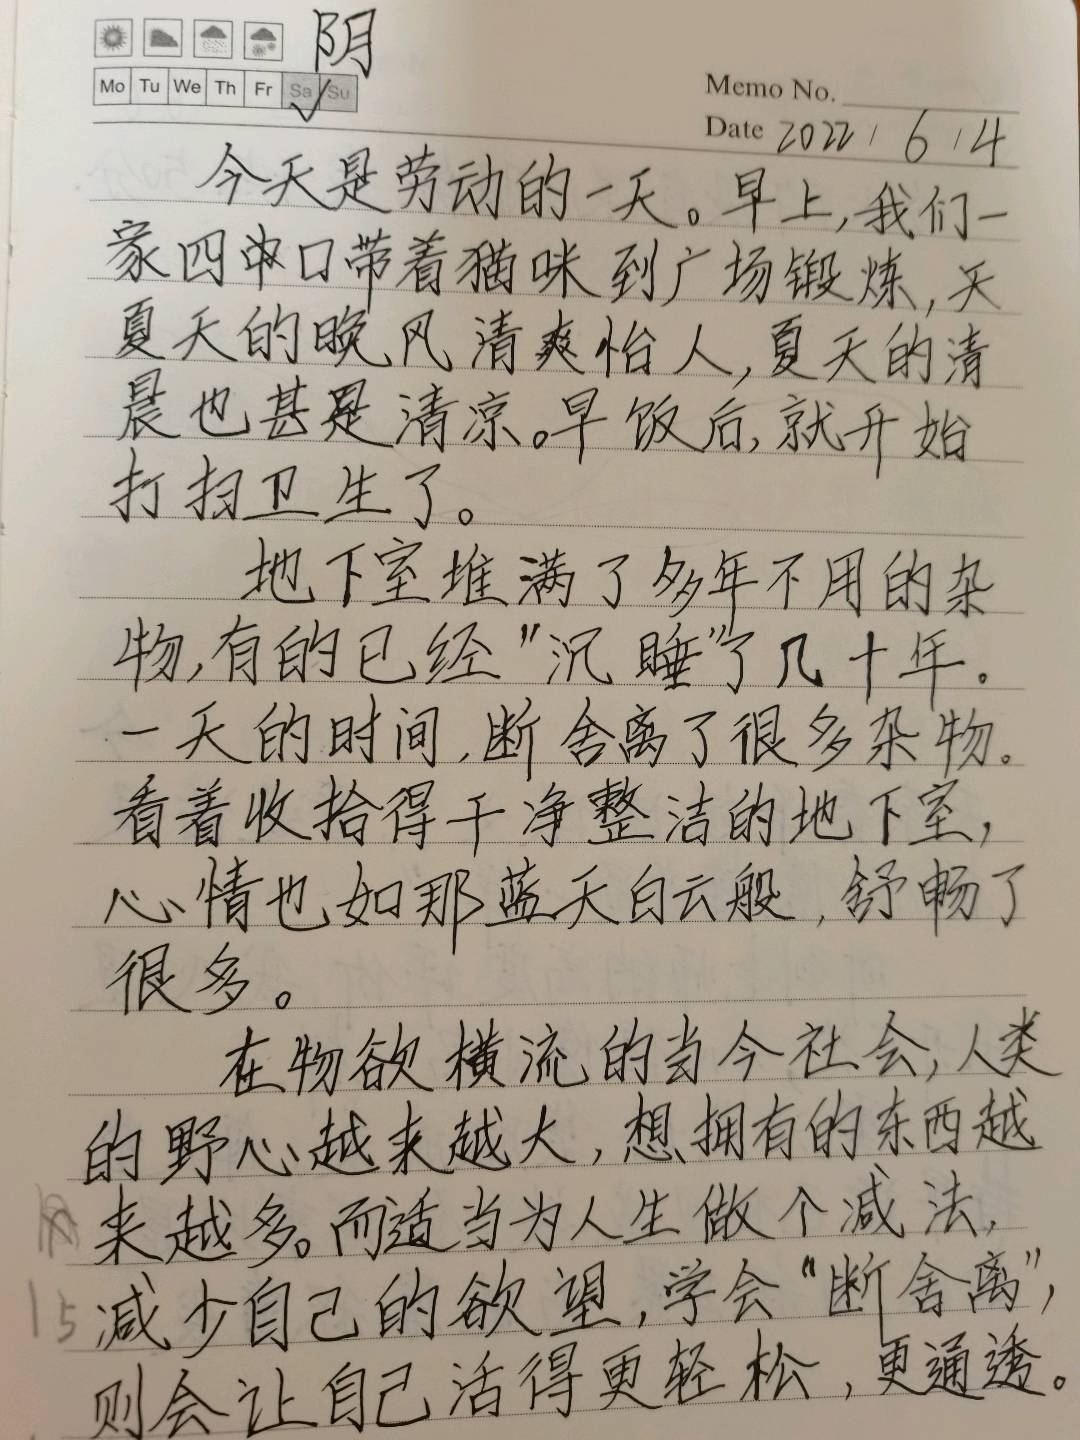 阴
Mo Tu We Th Fr Sa Su
Memo No.
Date 2022 / 6 / 4
今天是劳动的一天。早上,我们一
家四口带着猫咪到广场锻炼,天
夏天的晚风清爽怡人,夏天的清
晨也甚是清凉。早饭后,就开始
打扫卫生了。
地下室堆满了多年不用的杂
物,有的已经"沉睡"了几十年。
一天的时间,断舍离了很多杂物。
看着收拾得干净整洁的地下室,
心情也如那蓝天白云般,舒畅了
很多。
在物欲横流的当今社会,人类
的野心越来越大,想拥有的东西越
来越多。而适当为人生做个减法,
减少自己的欲望,学会"断舍离",
则会让自己活得更轻松,更通透。